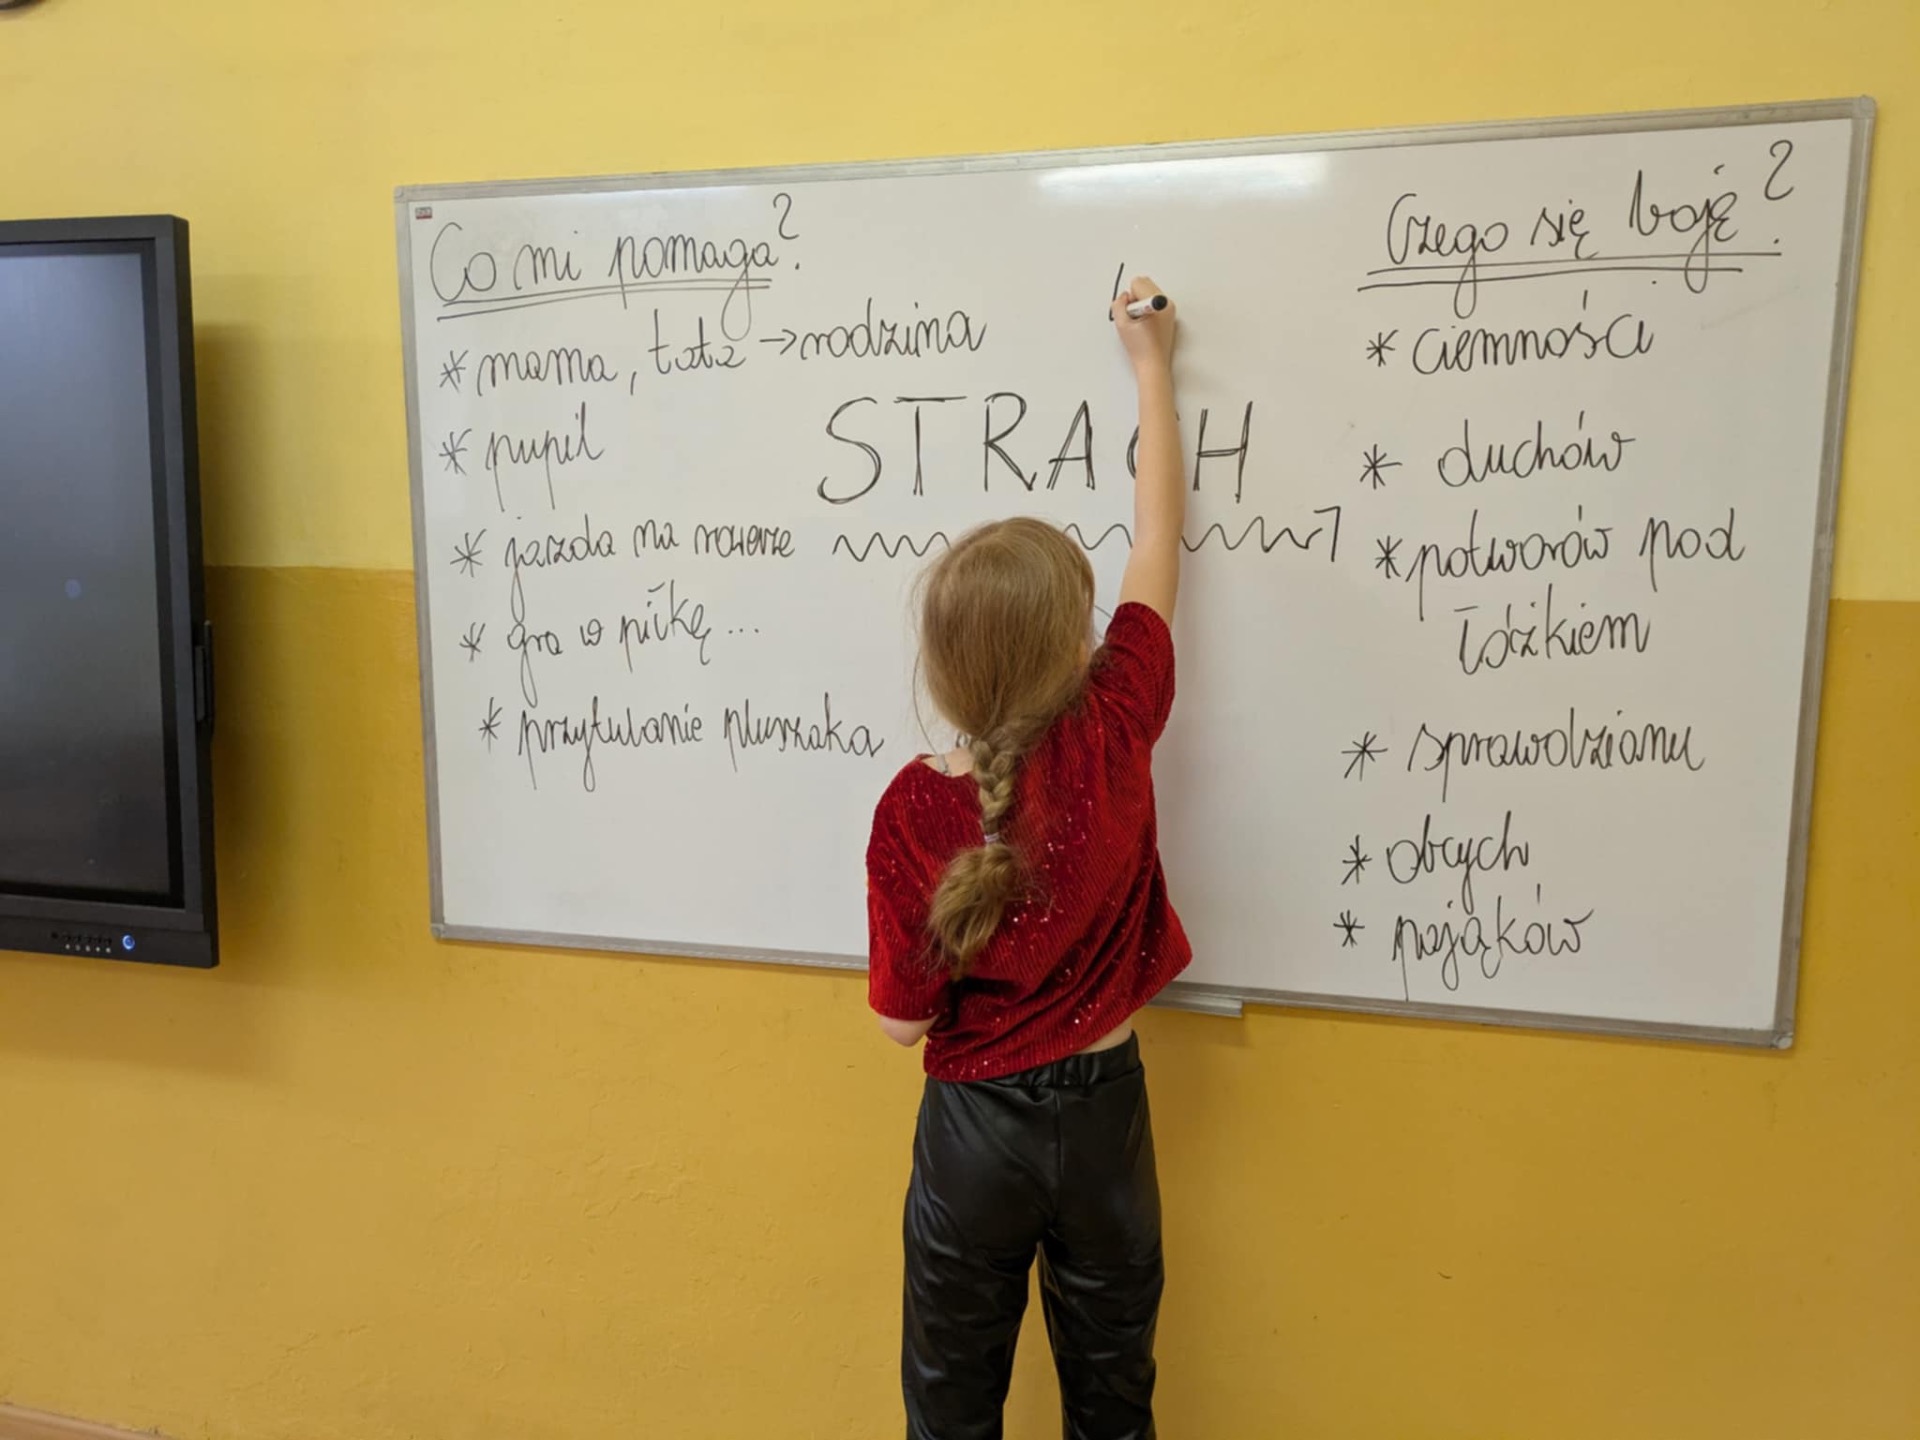 Co mi pomaga?
* mama, tata → rodzina
* pupil
* jazda na rowerze
* gra w piłkę...
* przytulanie pluszaka
STRACH
Czego się boję?
* ciemności
* duchów
* potworów pod
łóżkiem
* sprawdzianu
* obcych
* pająków